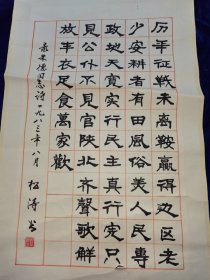 历年征戰未離鞍赢得边区老
少安耕者有田風俗美人民專
政地天寬实行民主真行宪只
見公仆不見官陕北齐聲歌解
放丰衣足食萬家歡
录朱德同志诗一九八三年八月 松涛书